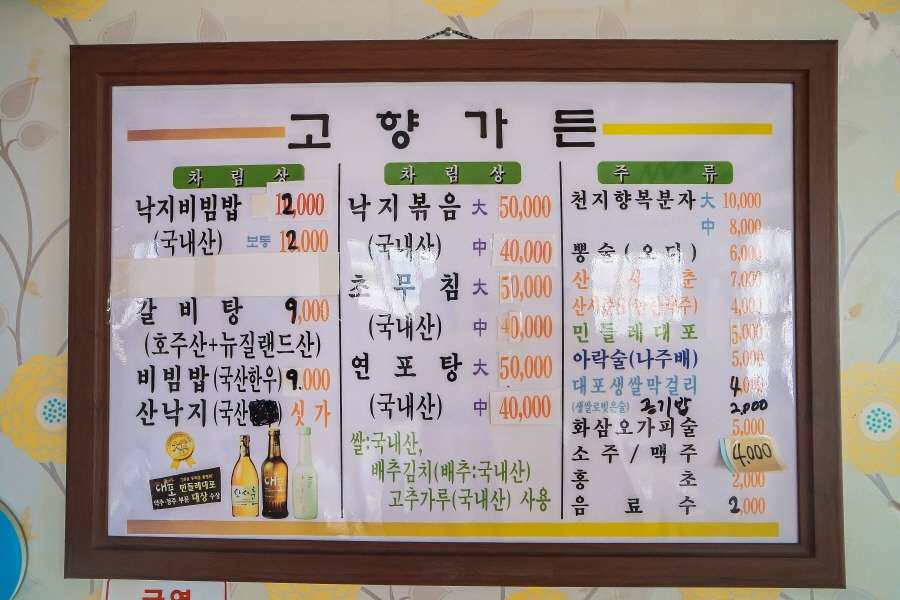 고향가든
차림상
낙지비빔밥 12,000
(국내산) 보통 12,000
갈비탕 9,000
(호주산+뉴질랜드산)
비빔밥(국산한우) 9,000
산낙지(국산 싯가
대포
민들레대포
약주·청주 부문 대상 수상
차림상
낙지볶음 大 50,000
(국내산) 中 40,000
초무침 大 50,000
(국내산) 中 40,000
연포탕 大 50,000
(국내산) 中 40,000
쌀:국내산,
배추김치(배추:국내산)
고추가루(국내산) 사용
주류
천지향복분자 大 10,000
中 8,000
뽕술(오디) 6,000
산사춘 7,000
4,000
민들레대포 5,000
아락술(나주배) 5,000
대포생쌀막걸리 4,000
(생쌀로빚은술) 공기밥 2,000
화삼오가피술 5,000
소주/맥주 4,000
홍초 2,000
음료수 2,000
금연